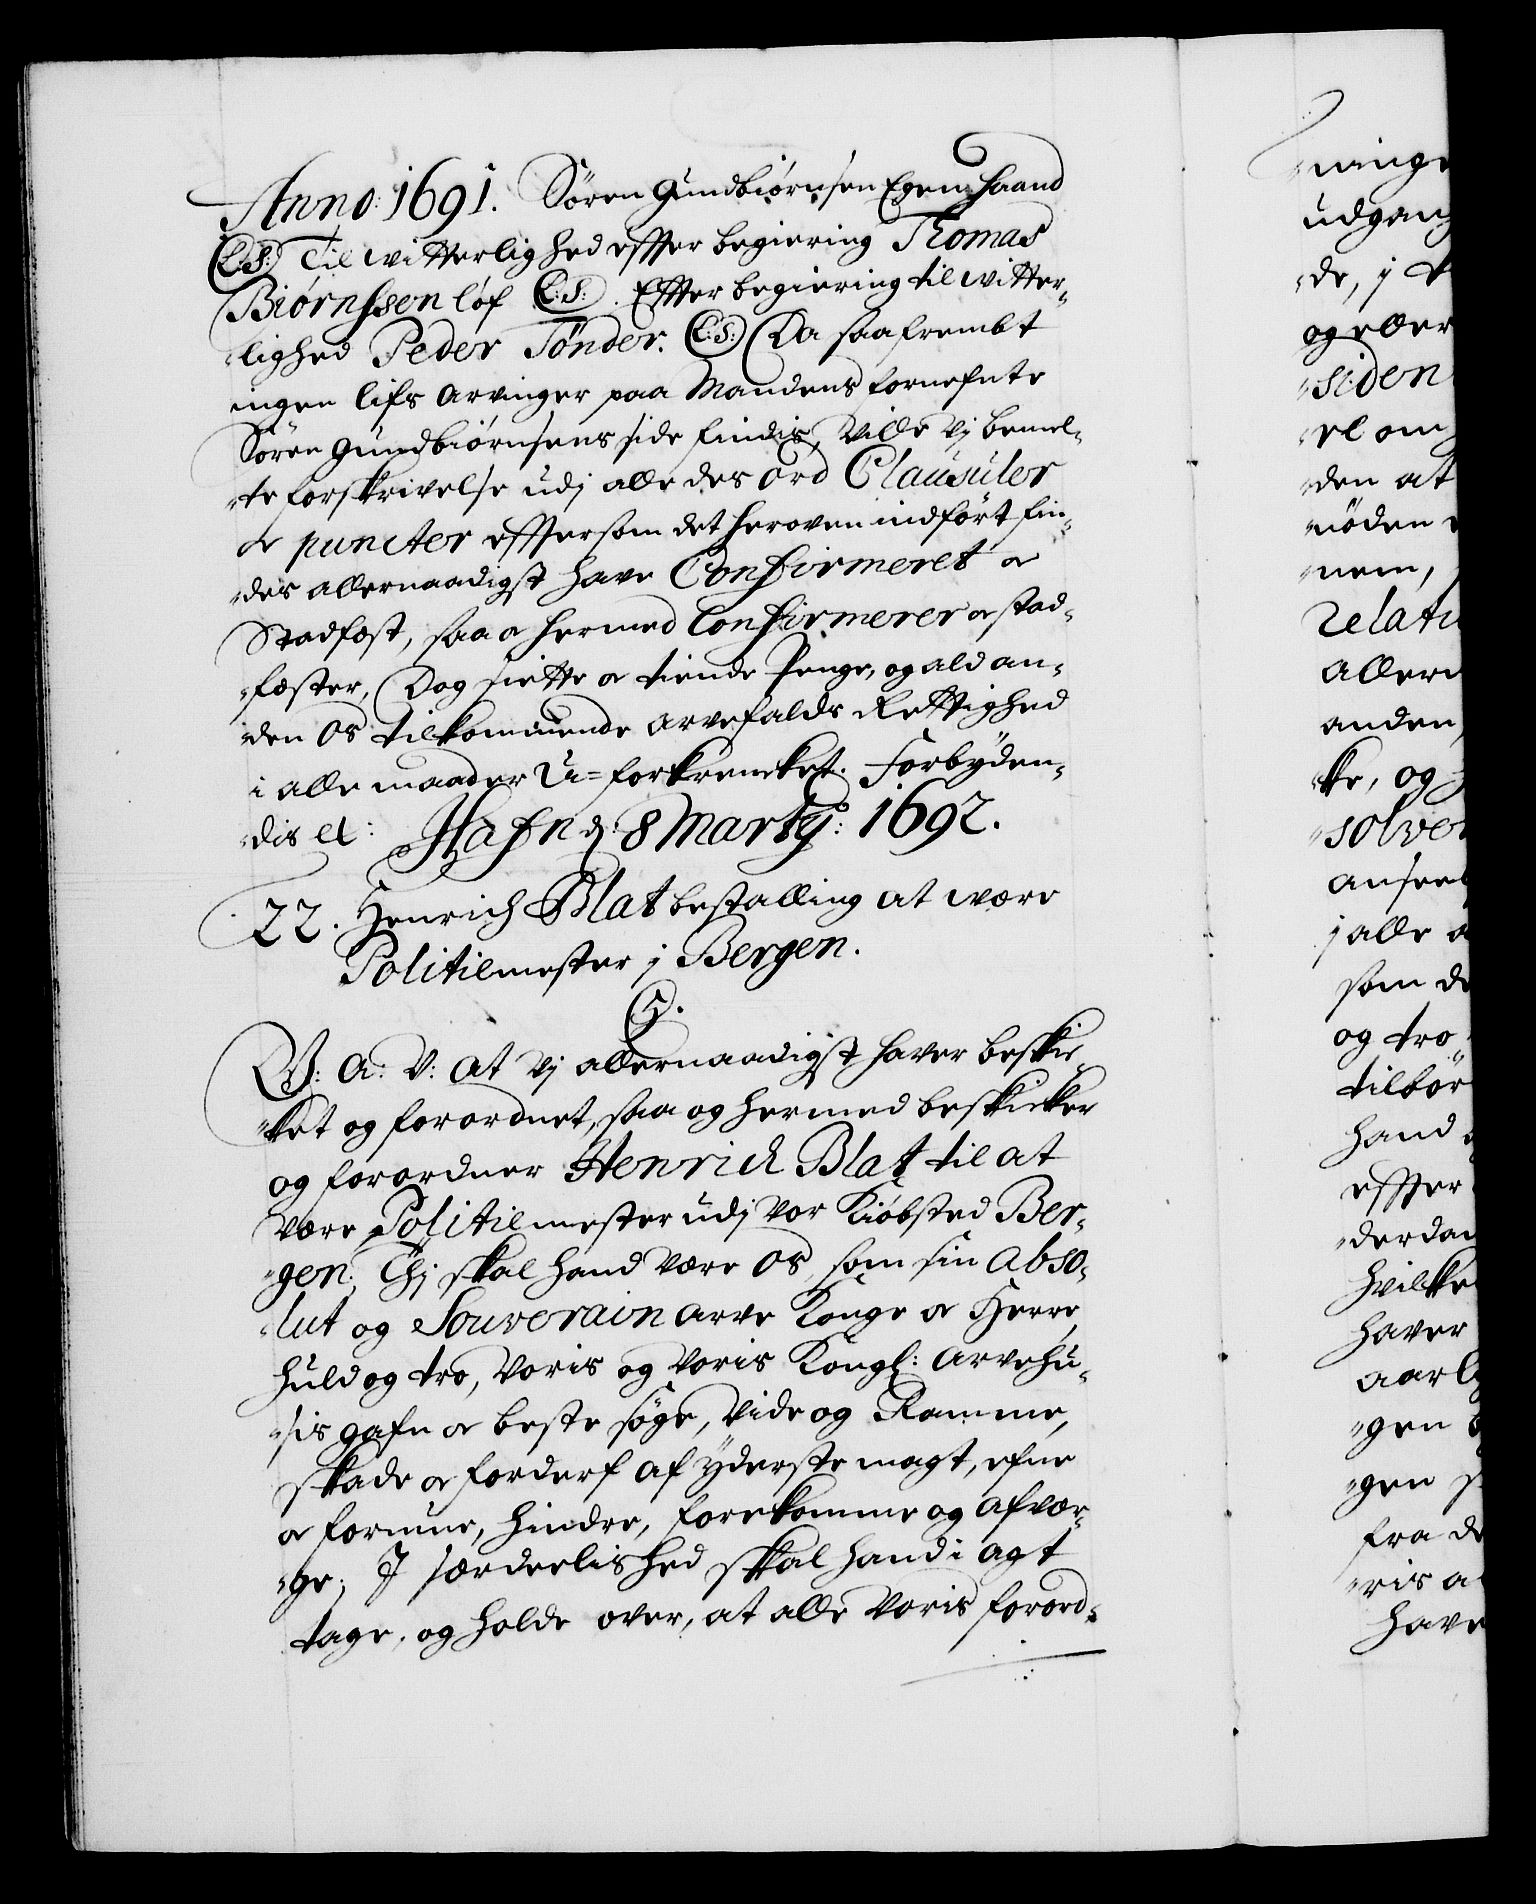 Anno: 1691. Sören Gundbiörnsen Egen Haand
(L.S.) Til witterlighed effter begiering Thomas
Biörnssen Löf (L:S:). Effter begiering til witter-
lighed Peder Tönder. (L:S:) Da saafrembt
ingen lifs Arvinger paa Mandens fornefnte
Sören Gundbiörnsens side findis, Ville Vj bemel-
te forskrivelse udj alle des ord Clausuler
oc puncter effter som det heroven indfört fin-
des allernaadigst have Confirmeret oc
Stadfæst, saa oc hermed Confirmerer oc stad-
fæster, Dog siette oc tiende Penge, og ald an-
den Os tilkommende Arvefalds Rettighed
i alle maader U=forkrencket. Forbyden-
dis etc: Hafn d: 8 Martij: 1692.
22. Henrich Blat bestalling at være
Politiemester j Bergen.
C5.
G: A: V: At Vj allernaadigst haver beskic-
ket og forordnet, saa og hermed beskicker
og forordner Henrich Blat til at
være Politiemester udj Vor Kiöbsted Ber-
gen; Thj skal hand være Os, som sin Abso-
lut og Souverain Arve Konge oc Herre,
huld og tro, Voris og Voris Kongl: Arvehu-
sis gafn oc beste söge, Vide og Ramme,
skade oc forderf af yderste magt, efne
oc formue, hindre, forekomme og afvær-
ge; I særdeelished skal hand i agt
tage, og holde over, at alle Voris forord-
ninge
udgang
de, j
og eller
siden
el om
den at
nöden
nem,
relati
Aller
anden,
ke, og
solver
ansee
j alle
som de
og tro
tilbör
hand
effter
derdan
hvilke
haver
aarl
gen
gen
fra de
ris
have